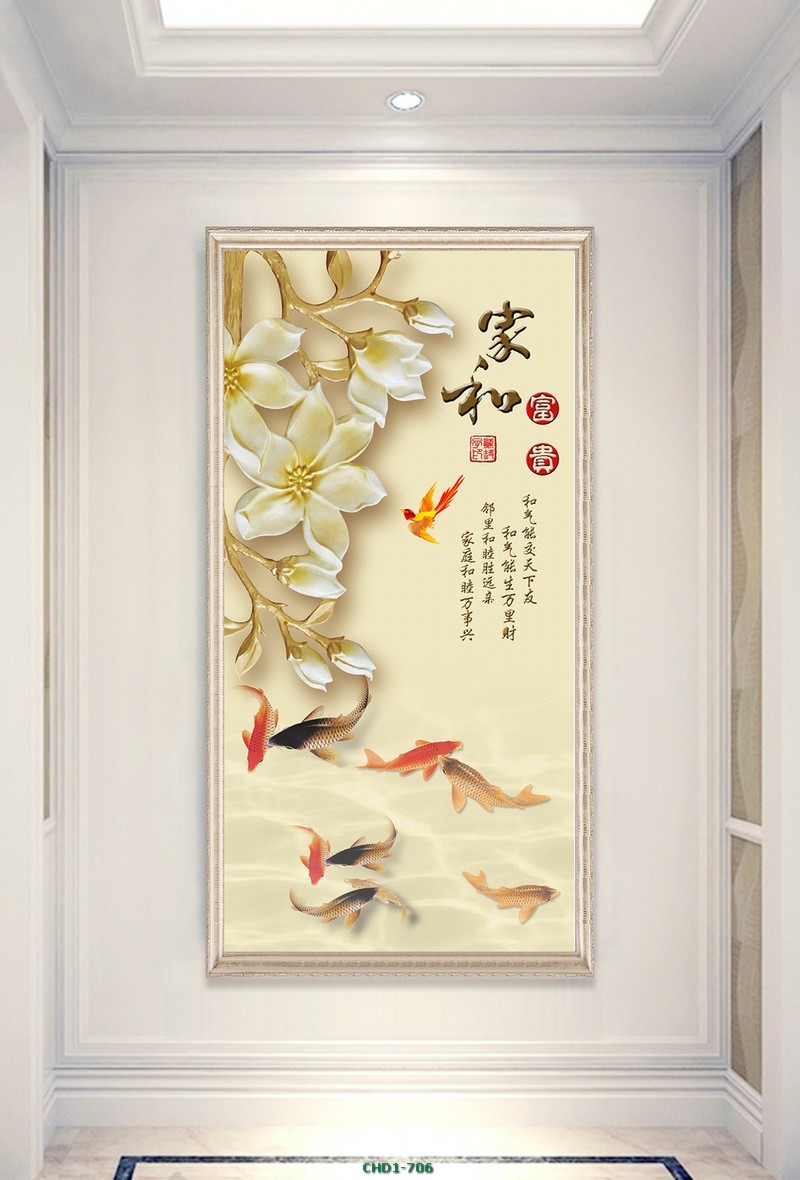 家和
富
貴
和气能交天下友
和气能生万里财
邻里和睦胜远亲
家庭和睦万事兴
CHD1-706